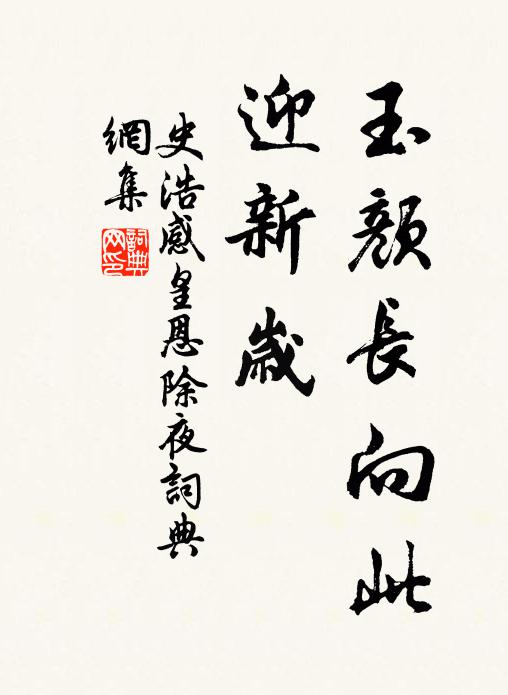 玉顏長向此
迎新歲
史浩感皇恩除夜詞典
網集
詞典
网印